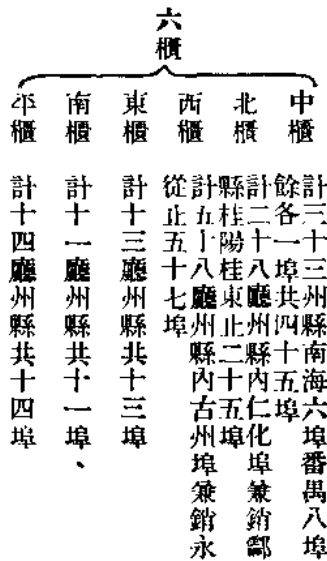 六櫃
中櫃
計三十三州縣南海六埠番禺八埠
餘各一埠共四十五埠
北櫃
計二十八廳州縣內仁化埠兼銷酃
縣桂陽桂東止二十五埠
西櫃
計五十八廳州縣內古州埠兼銷永
從止五十七埠
東櫃
計十三廳州縣共十三埠
南櫃
計十一廳州縣共十一埠、
平櫃
計十四廳州縣共十四埠